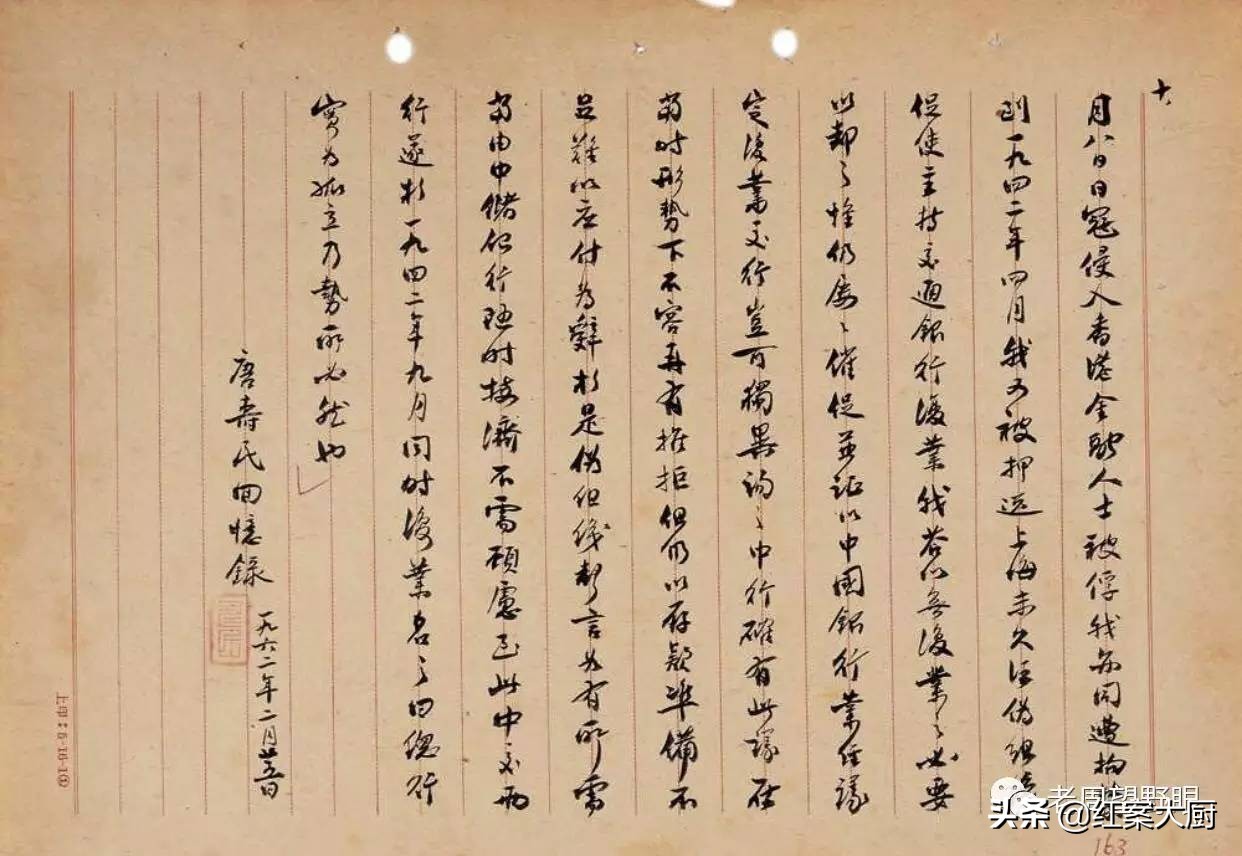 十
月八日日寇侵入香港金融人士被俘我亦同遭拘
到一九四二年四月我又被押返上海未久汪偽組織
促使主持交通銀行復業我答以無復業之必要
以却之惟仍屢々催促並証以中國銀行業經議
定復業交行豈可獨異詢之中行確有此議在
當時形勢下不容再有推拒但仍以存款準備不
足難以應付為辭於是偽組織聲言如有所需
當由中儲銀行隨時接濟不需顧慮至此中交兩
行遂於一九四二年九月同時復業名之曰總行
實為孤立乃勢所必然也
唐壽民回憶錄
一九六二年二月廿五日
163
老周望野眼
头条 @红案大厨